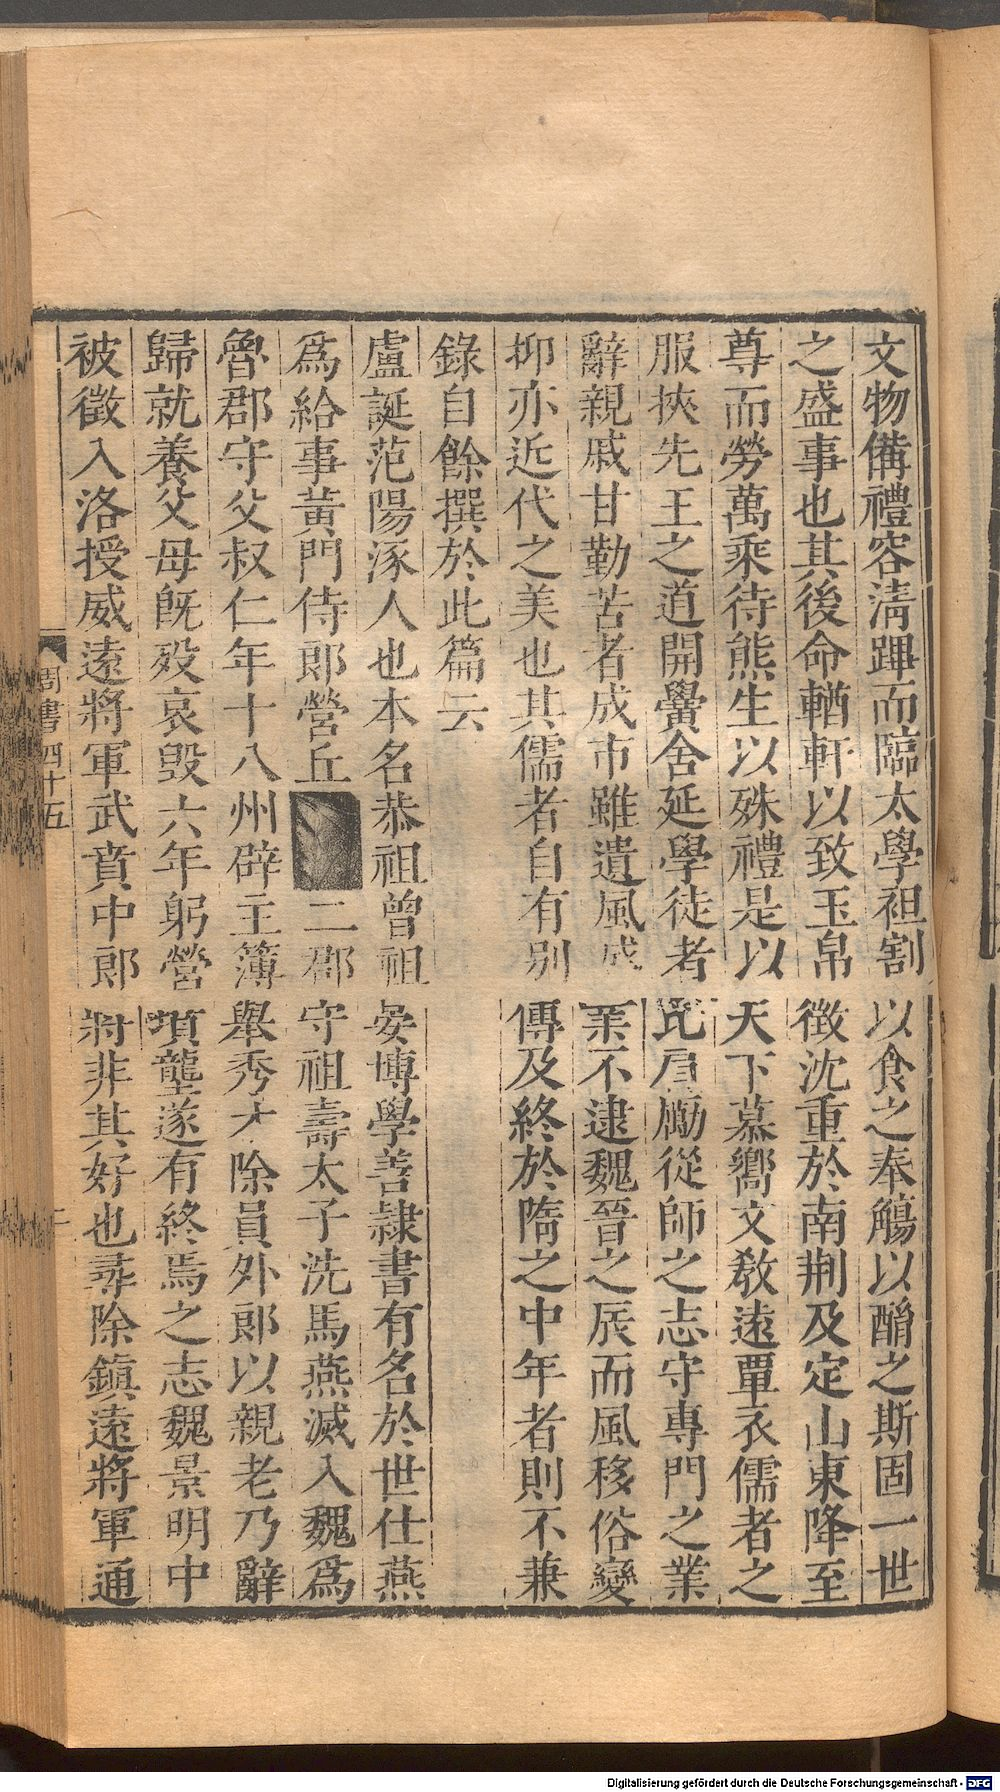 文物備禮容清蹕而臨太學袒割以食之奉觴以酳之斯固一世
之盛事也其後命輶軒以致玉帛徵沈重於南荆及定山東降至
尊而勞萬乘待熊生以殊禮是以天下慕嚮文敎遠覃衣儒者之
服挾先王之道開黌舍延學徒者比肩勵從師之志守專門之業
辭親戚甘勤苦者成市雖遺風盛業不逮魏晉之辰而風移俗變
抑亦近代之美也其儒者自有別傳及終於隋之中年者則不兼
錄自餘撰於此篇云
盧誕范陽涿人也本名恭祖曾祖晏博學善隷書有名於世仕燕
爲給事黃門侍郎營丘二郡守祖壽太子洗馬燕滅入魏爲
魯郡守父叔仁年十八州辟主簿舉秀才除員外郎以親老乃辭
歸就養父母旣歿哀毀六年躬營墳壟遂有終焉之志魏景明中
被徵入洛授威遠將軍武賁中郎將非其好也尋除鎭遠將軍通
周書四十五
二
Digitalisierung gefördert durch die Deutsche Forschungsgemeinschaft - DFG